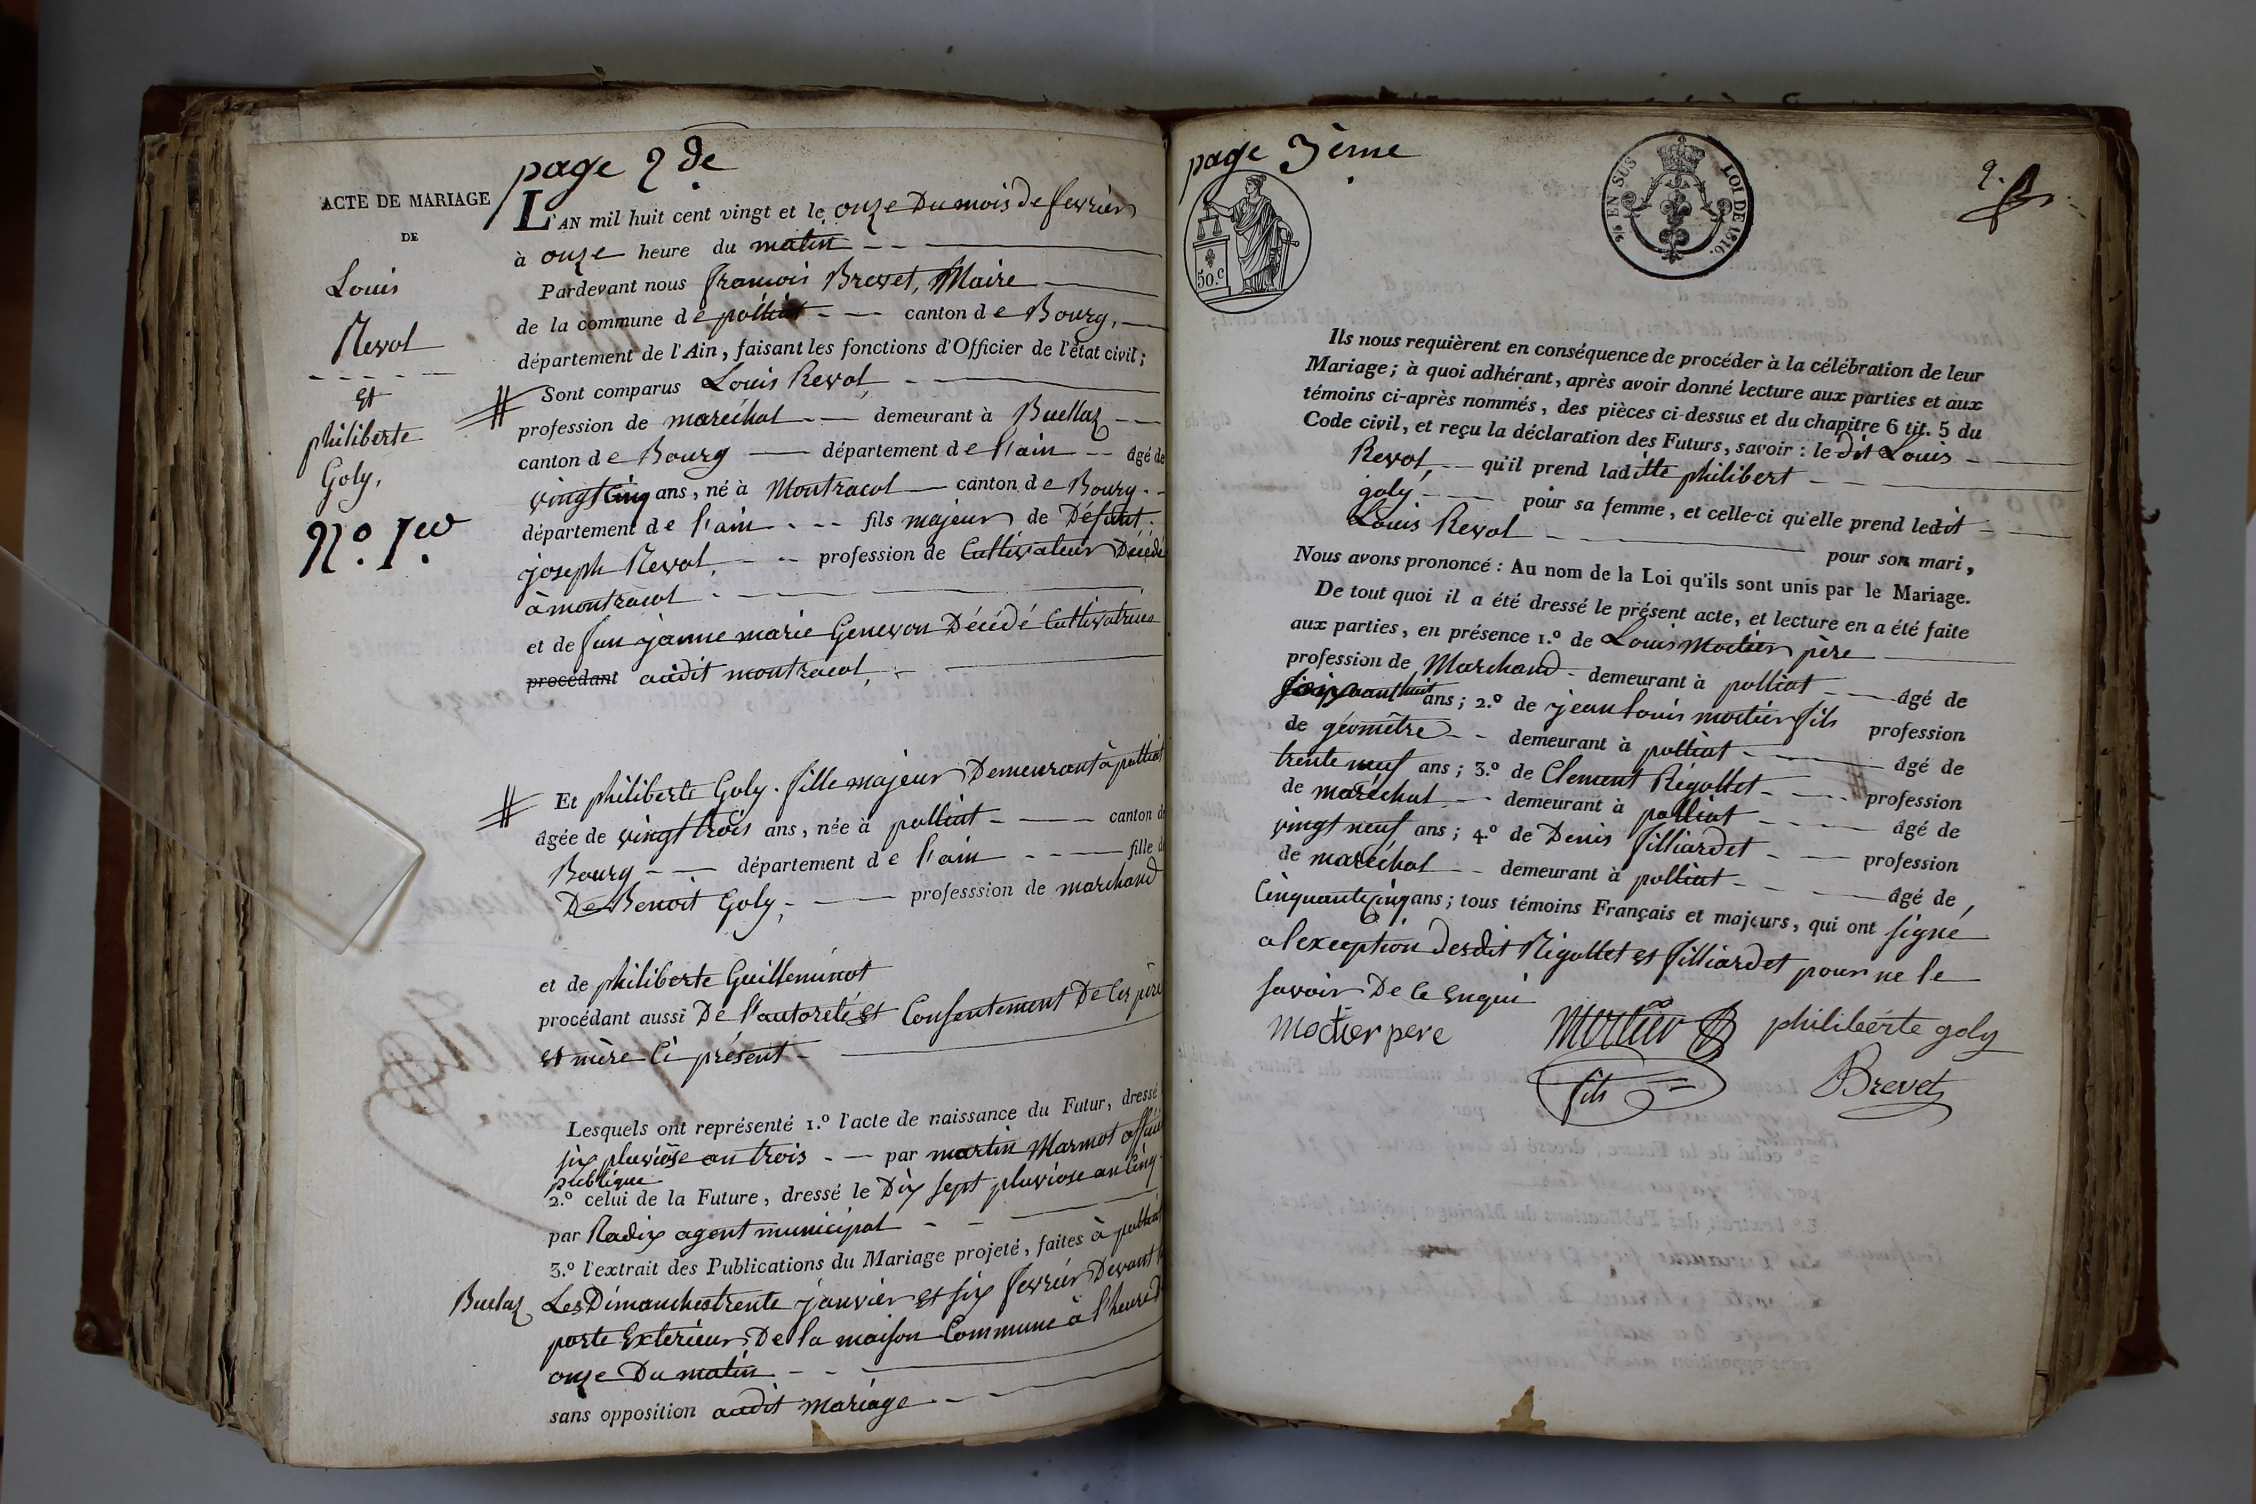 page 2de
ACTE DE MARIAGE
DE
Louis
Revol
Et
philiberte
Goly,
N.o 1er
L'AN mil huit cent vingt et le onze Du mois de fevrier
à onze heure du matin
Pardevant nous françois Brevet, Maire
de la commune de polliat canton de Bourg,
département de l'Ain, faisant les fonctions d'Officier de l'état civil;
Sont comparus Louis Revol
profession de maréchal demeurant à Buellaz
canton de Bourg département de l'ain âgé de
vingt cinq ans, né à Montracol canton de Bourg
département de l'ain fils majeur de Défunt
joseph Revol, profession de Cultivateur Décédé
à montracol
et de feu jeanne marie Genevon Décédé Cultivatrice
procédant audit montracol
Et philiberte Goly. fille majeur Demeurant à polliat
âgée de vingt trois ans, née à polliat canton de
Bourg département de l'ain fille de
De Benoit Goly, professsion de marchand
et de philiberte Guilleminot
procédant aussi De l'autoreté et Consentement De Ces père
et mère Ci présent
Lesquels ont représenté 1.º l'acte de naissance du Futur, dressé
six pluviôse an trois par martin Marmot officié
publique
2.º celui de la Future, dressé le Dix sept pluviose an Cinq
par Radix agent municipal
3.º l'extrait des Publications du Mariage projeté, faites à polliat
Buelaz Les Dimanches trente janvier et six fevrier Devant la
porte Exterieur De la maison Commune à l'heure D
onze Du matin
sans opposition audit mariage
page 3ème
50.c
EN SUS LOI DE 1816.
2.
Ils nous requièrent en conséquence de procéder à la célébration de leur
Mariage; à quoi adhérant, après avoir donné lecture aux parties et aux
témoins ci-après nommés, des pièces ci-dessus et du chapitre 6 tit. 5 du
Code civil, et reçu la déclaration des Futurs, savoir: le dit Louis
Revol, qu'il prend laditte philibert
goly pour sa femme, et celle-ci qu'elle prend ledit
Louis Revol pour son mari,
Nous avons prononcé: Au nom de la Loi qu'ils sont unis par le Mariage.
De tout quoi il a été dressé le présent acte, et lecture en a été faite
aux parties, en présence 1.º de Louis Mortier père
profession de Marchand demeurant à polliat âgé de
soixante huit ans; 2.º de jean louis mortier fils profession
de géomètre demeurant à polliat âgé de
trente neuf ans; 3.º de Clement Rigollet profession
de maréchal demeurant à polliat âgé de
vingt neuf ans; 4.º de Denis filliardet profession
de maréchal demeurant à polliat âgé de
Cinquante cinq ans; tous témoins Français et majeurs, qui ont signé
a lexception desdit Rigollet et filliardet pour ne le
savoir De Ce Enqui
Mortier pere Mortier philibérte goly
fils Brevet